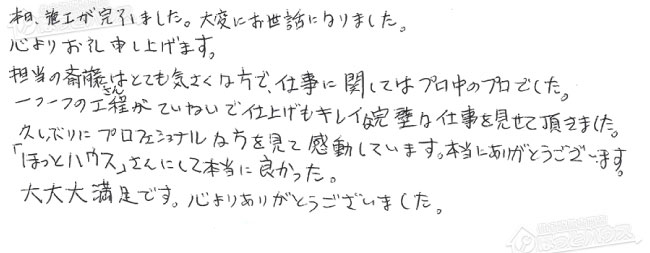 本日、施工が完了しました。大変にお世話になりました。
心よりお礼申し上げます。
担当の斎藤さんはとても気さくな方で、仕事に関してはプロ中のプロでした。
一つ一つの工程がていねいで仕上げもキレイな完璧な仕事を見せて頂きました。
久しぶりにプロフェショナルな方を見て感動しています。本当にありがとうございます。
「ほっとハウス」さんにして本当に良かった。
大大大満足です。心よりありがとうございました。
ほっとハウス